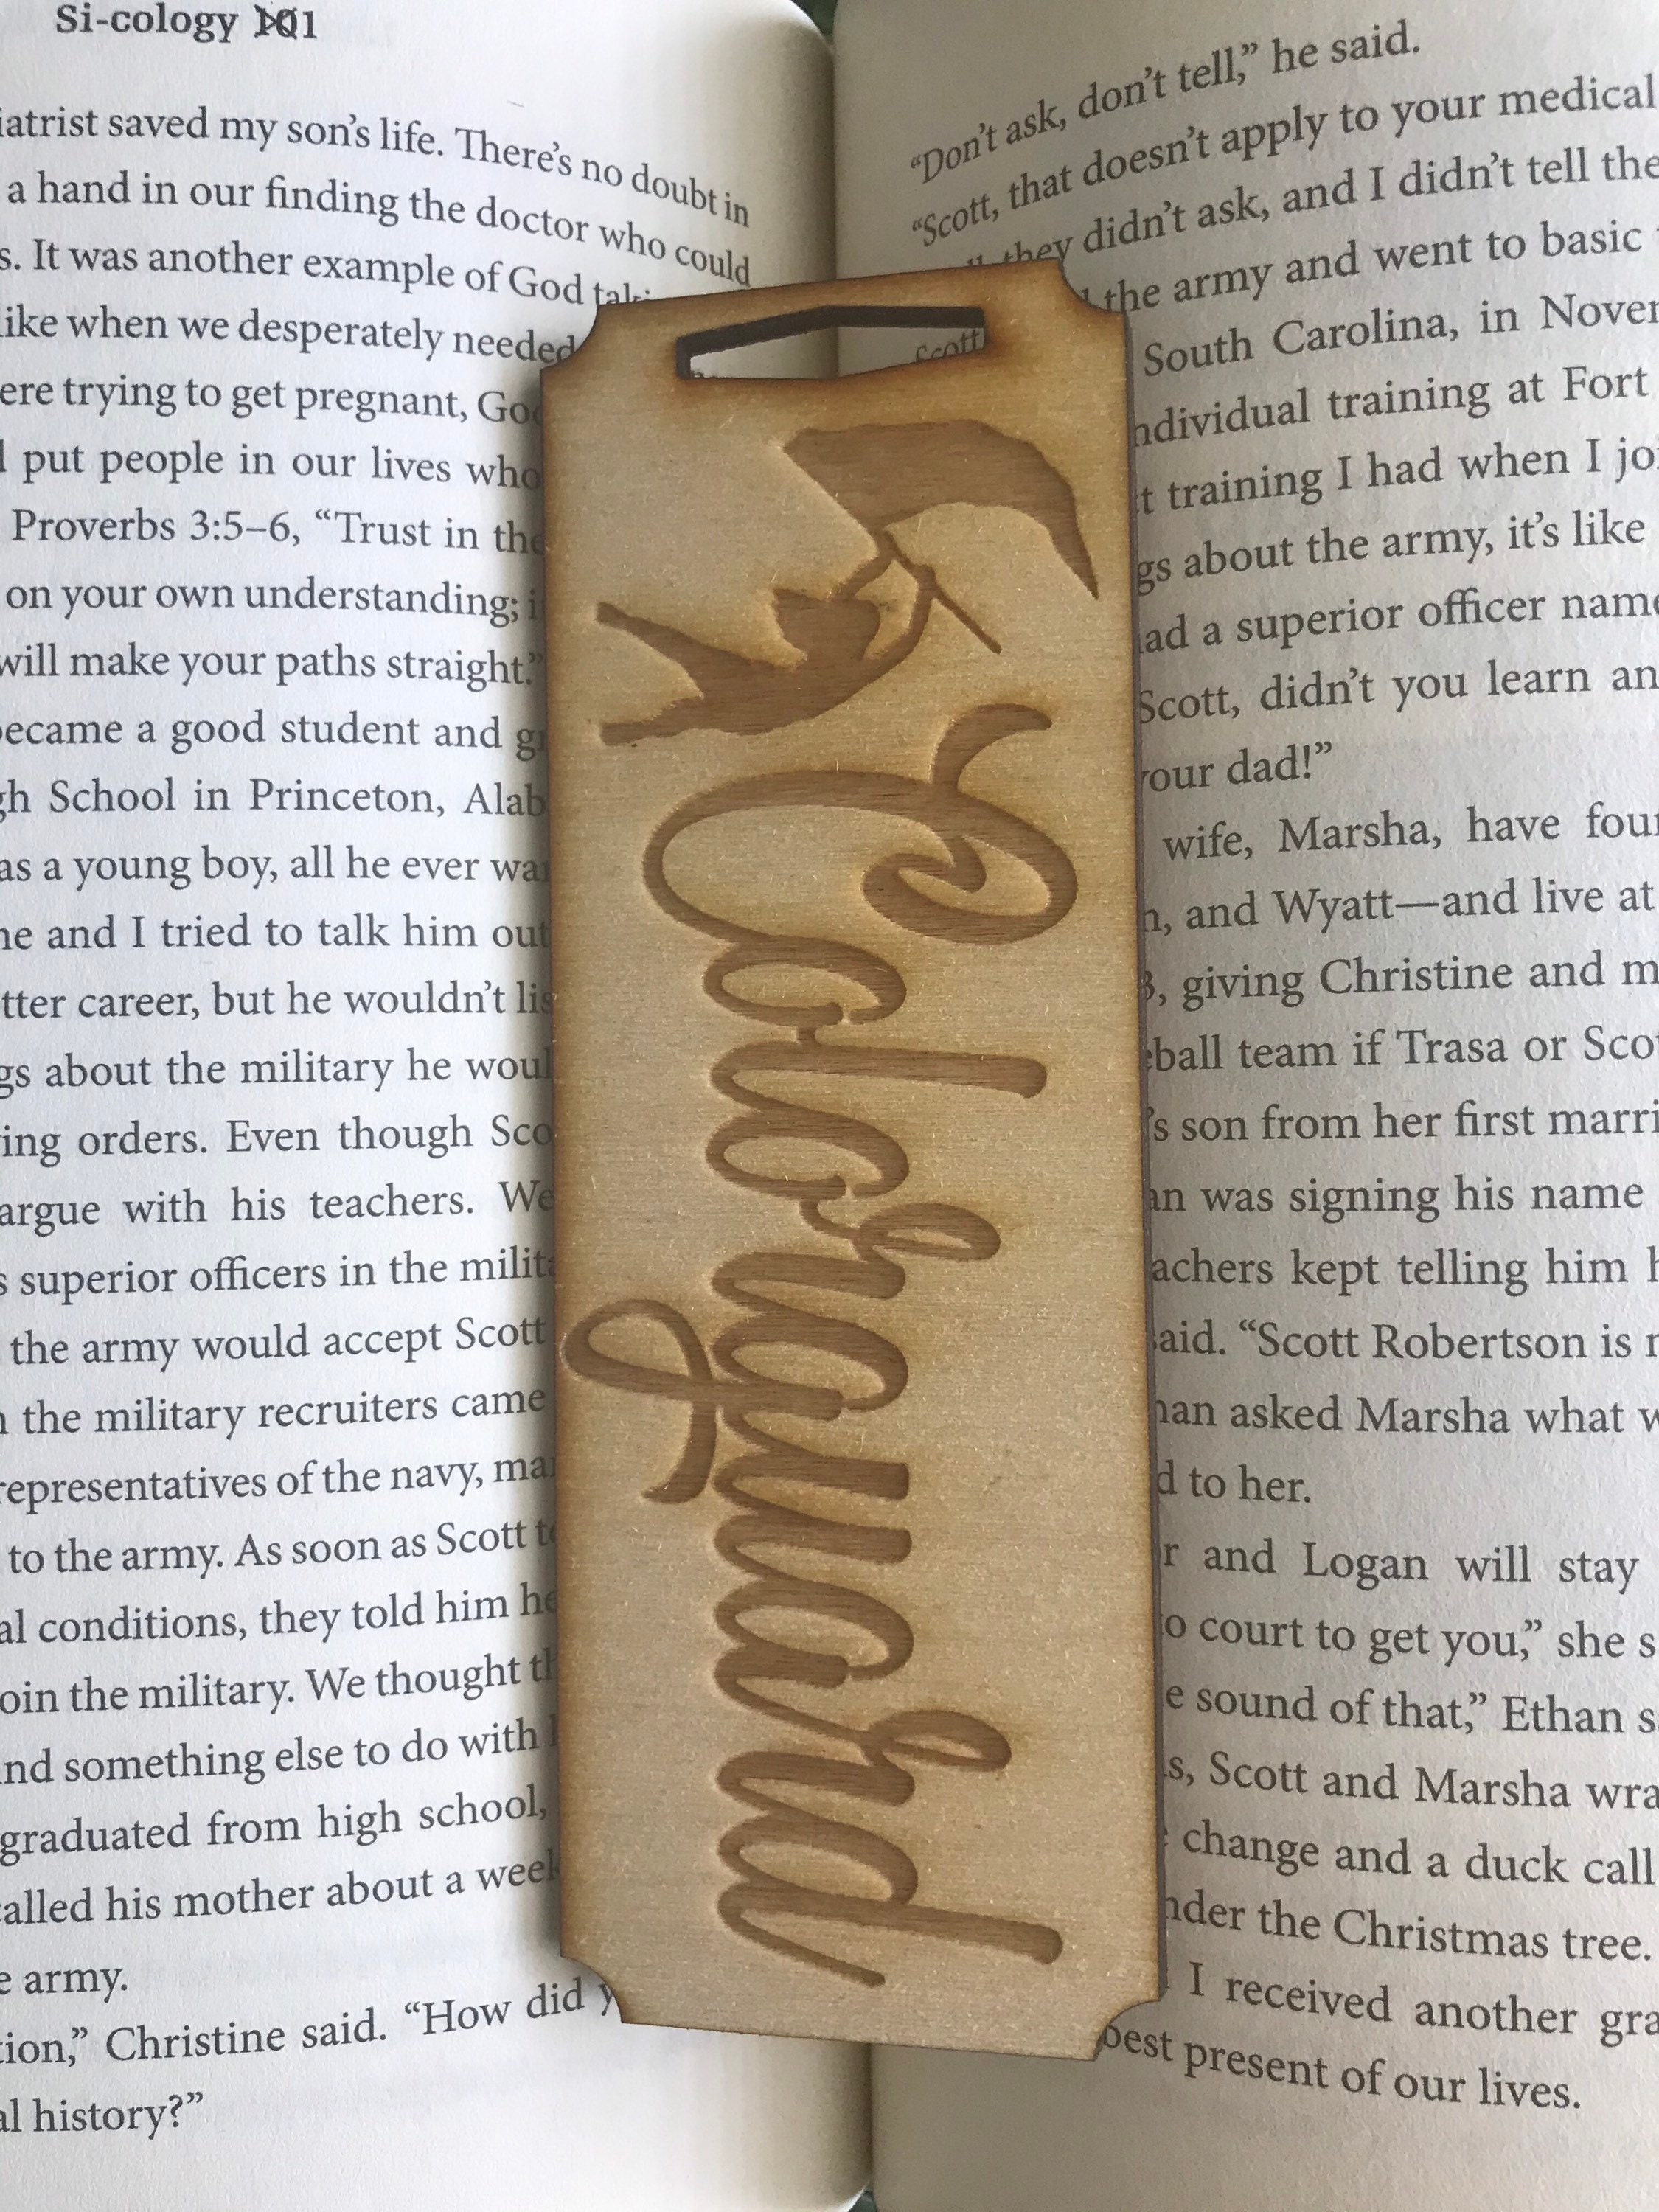 Si-cology 101
iatrist saved my son's life. There's no doubt in
a hand in our finding the doctor who could
s. It was another example of God taki
ike when we desperately needed
ere trying to get pregnant, God
put people in our lives who
Proverbs 3:5–6, “Trust in the
on your own understanding; i
will make your paths straight.”
became a good student and gr
gh School in Princeton, Alab
as a young boy, all he ever wa
ne and I tried to talk him out
tter career, but he wouldn't lis
gs about the military he woul
ing orders. Even though Sco
argue with his teachers. We
s superior officers in the milita
the army would accept Scott
n the military recruiters came
representatives of the navy, mar
to the army. As soon as Scott to
al conditions, they told him he
oin the military. We thought th
nd something else to do with h
graduated from high school,
called his mother about a week
e army.
tion,” Christine said. “How did y
al history?”
Colorguard
“Don't ask, don't tell,” he said.
“Scott, that doesn't apply to your medical
they didn't ask, and I didn't tell the
Scott
the army and went to basic t
South Carolina, in Novem
ndividual training at Fort
t training I had when I joi
gs about the army, it's like
ad a superior officer name
Scott, didn't you learn an
your dad!”
wife, Marsha, have four
n, and Wyatt—and live at
3, giving Christine and m
eball team if Trasa or Scot
's son from her first marri
an was signing his name
achers kept telling him h
said. “Scott Robertson is m
han asked Marsha what w
d to her.
r and Logan will stay
o court to get you,” she s
e sound of that,” Ethan s
s, Scott and Marsha wra
change and a duck call
nder the Christmas tree.
I received another gra
best present of our lives.